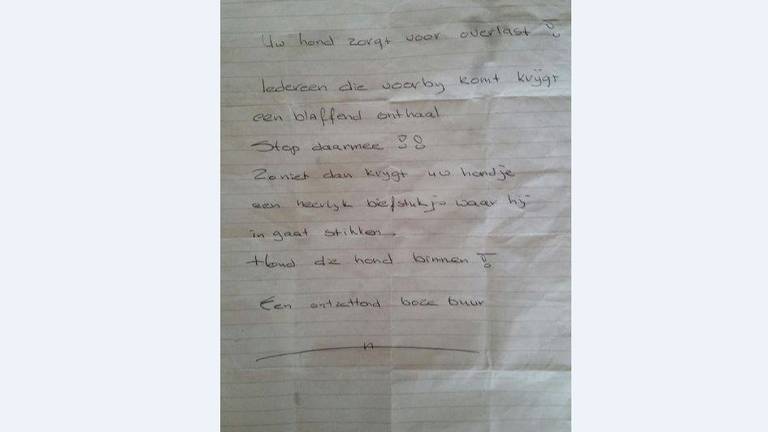 Uw hond zorgt voor overlast!
Iedereen die voorby komt krijgt
een blaffend onthaal
Stop daarmee !!
Zoniet dan krijgt uw hondje
een heerlijk biefstukje waar hij
in gaat stikken.
Houd de hond binnen!
Een ontzettend boze buur